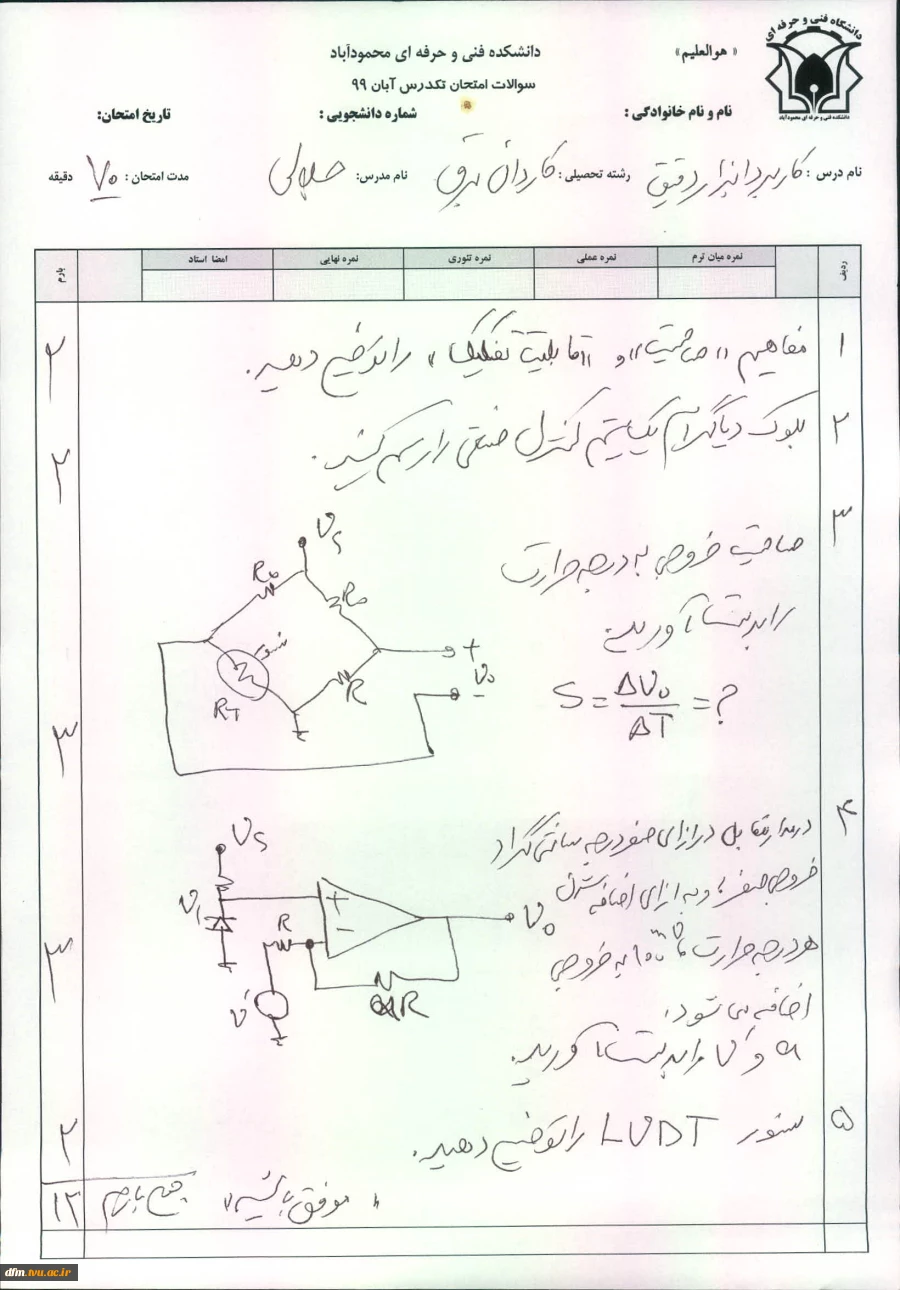 دانشگاه فنی و حرفه ای
دانشکده فنی و حرفه ای محمودآباد
« هوالعلیم»
دانشکده فنی و حرفه ای محمودآباد
سوالات امتحان تکدرس آبان ۹۹
نام و نام خانوادگی : شماره دانشجویی : تاریخ امتحان:
نام درس : کاربرد ابزار دقیق رشته تحصیلی : کاردانی برق نام مدرس: جلالی مدت امتحان : ۷۰ دقیقه
ردیف نمره میان ترم نمره عملی نمره تئوری نمره نهایی امضا استاد بارم
۱ مفاهیم "صاحیت" و "قابلیت تفکیک" را توضیح دهید. ۲
۲ بلوک دیاگرام یک سیستم کنترل صنعتی را رسم کنید. ۲
۳ خروجی به درجه حرارت
را بدست آورید.
S = ΔV₀/ΔT = ?
۳
Vs
R₀ R₀
سنسور
RT R
+
V₀
-
۴ در مدار مقابل در ازای صفر درجه سانتی گراد
خروجی صفر و به ازای اضافه شدن
هر درجه حرارت ۱۰۰ به خروجی
اضافه می شود.
a و V' را بدست آورید.
۳
Vs
V₁
+
-
V₀
R
aR
V'
۵ سنسور LVDT را توضیح دهید. ۲
"موفق باشید" جمع بارم ۱۲
dfm.tvu.ac.ir